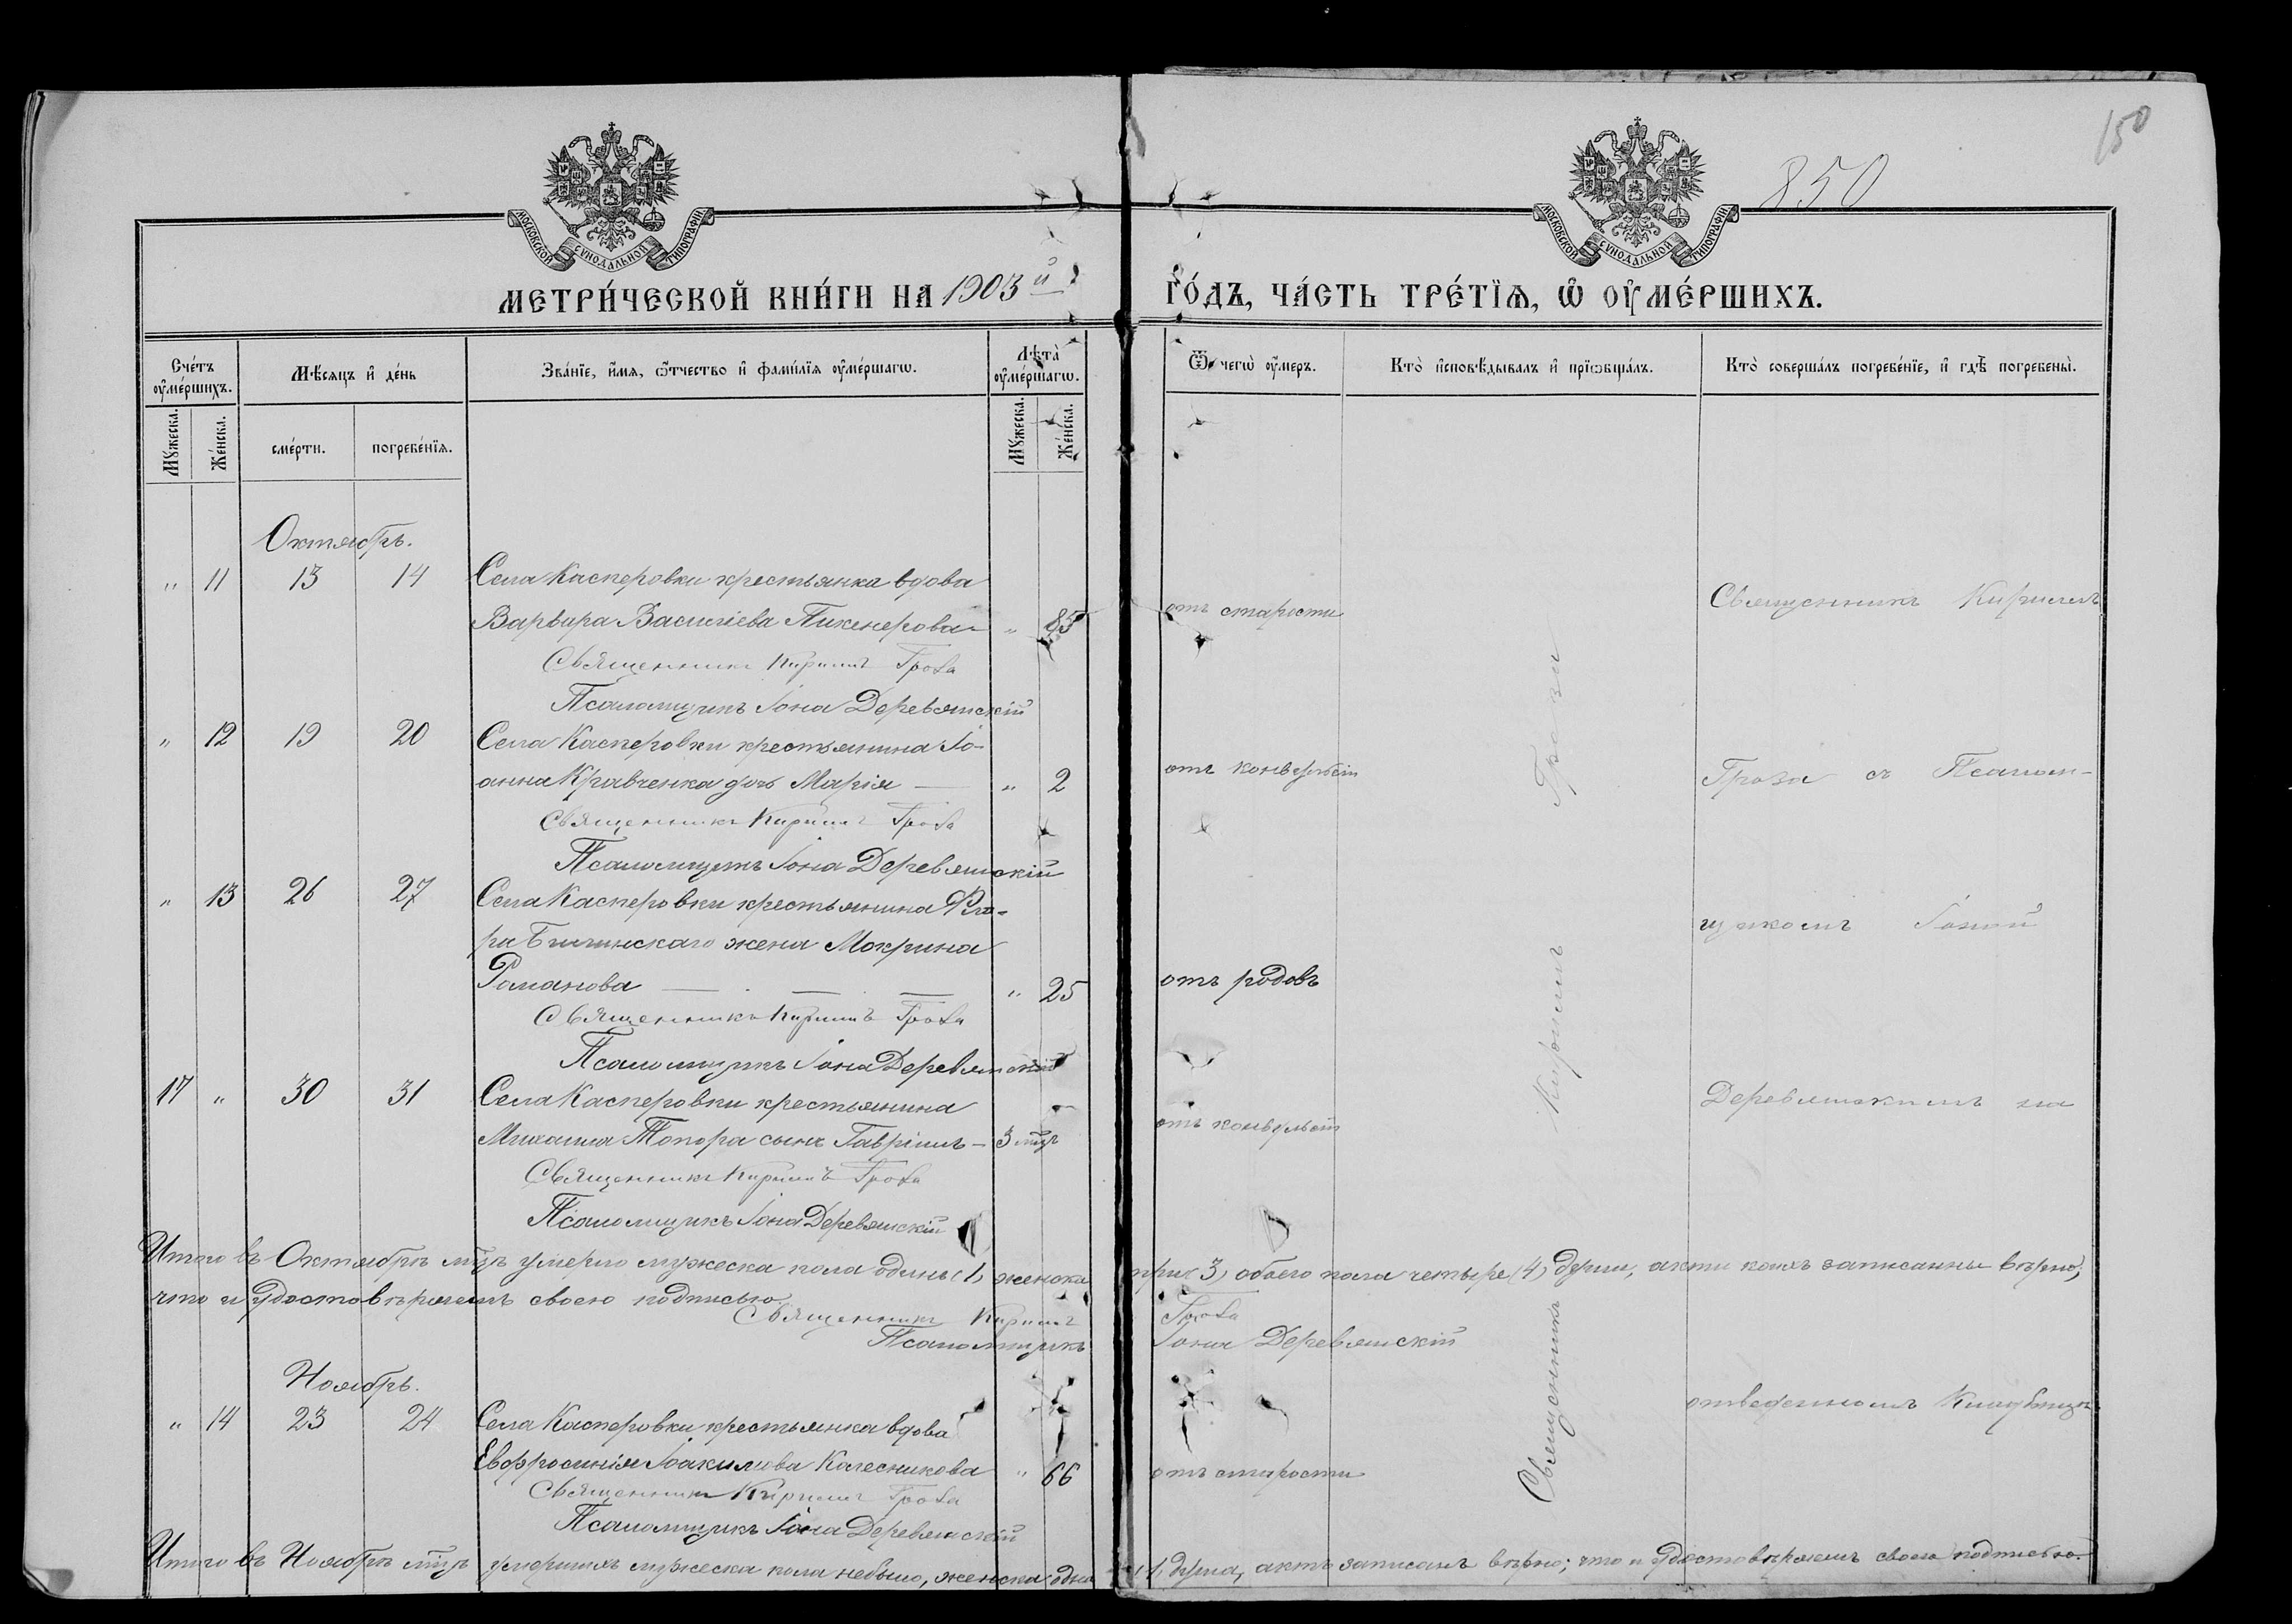 150
850
МОСКОВСКОЙ СѴНОДАЛЬНОЙ ТИПОГРАФІИ
МОСКОВСКОЙ СѴНОДАЛЬНОЙ ТИПОГРАФІИ
МЕТРИ́ЧЕСКОЙ КНИ́ГИ НА 1903й
ГО́ДЪ, ЧА́СТЬ ТРЕ́ТІѦ, Ѽ ОУ҆МЕ́РШИХЪ.
Сче́тъ оу҆ме́ршихъ.
Мѣ́сяцъ и҆ де́нь
Зва́нїе, и҆́мя, ѻ҆́тчество и҆ фами́лїя оу҆ме́ршагѡ.
Лѣ́та оу҆ме́ршагѡ.
Ѿ чегѡ̀ оу҆́меръ.
Кто̀ и҆сповѣ́дывалъ и҆ прїѡбща́лъ.
Кто̀ соверша́лъ погребе́нїе, и҆ гдѣ̀ погребены̀.
Мꙋ́жеска.
Же́нска.
сме́рти.
погребе́нїя.
Мꙋ́жеска.
Же́нска.
Октябрь.
" 11 13 14 Села Касперовки крестьянка вдова
Варвара Василіева Пикенерова " 85 отъ старости
Священникъ Кириллъ Гроза
Псаломщикъ Іона Деревянскій
" 12 19 20 Села Касперовки крестьянина Іо-
анна Кравченка дочь Марія — " 2 отъ конвульсій
Священникъ Кириллъ Гроза
Псаломщикъ Іона Деревянскій
" 13 26 27 Села Касперовки крестьянина
жена Мокрина
Романова — " 25 отъ родовъ
Священникъ Кириллъ Гроза
Псаломщикъ Іона Деревянскій
17 " 30 31 Села Касперовки крестьянина
Михаила Топора сынъ Гавріилъ — 3 мѣц отъ конвульсій
Священникъ Кириллъ Гроза
Псаломщикъ Іона Деревянскій
Итого въ Октябрѣ мѣцѣ умерло мужеска пола одинъ (1), женска три (3), обоего пола четыре (4) души, акты коихъ записанны вѣрно;
что и удостовѣряемъ своею подписью.
Священникъ Кириллъ Гроза
Псаломщикъ Іона Деревянскій
Ноябрь.
" 14 23 24 Села Касперовки крестьянка вдова
Евфросинія Іоакимова Колесникова " 66 отъ старости
Священникъ Кириллъ Гроза
Псаломщикъ Іона Деревянскій
Итого въ Ноябрѣ мѣцѣ умершихъ мужеска пола небыло, женска одна (1) душа, актъ записанъ вѣрно; что и удостовѣряемъ своею подписью.
Священникъ Кириллъ Гроза
Священникъ Кириллъ
Гроза съ Псалом-
щикомъ Іоной
Деревянскимъ на
отведенномъ Кладбищѣ